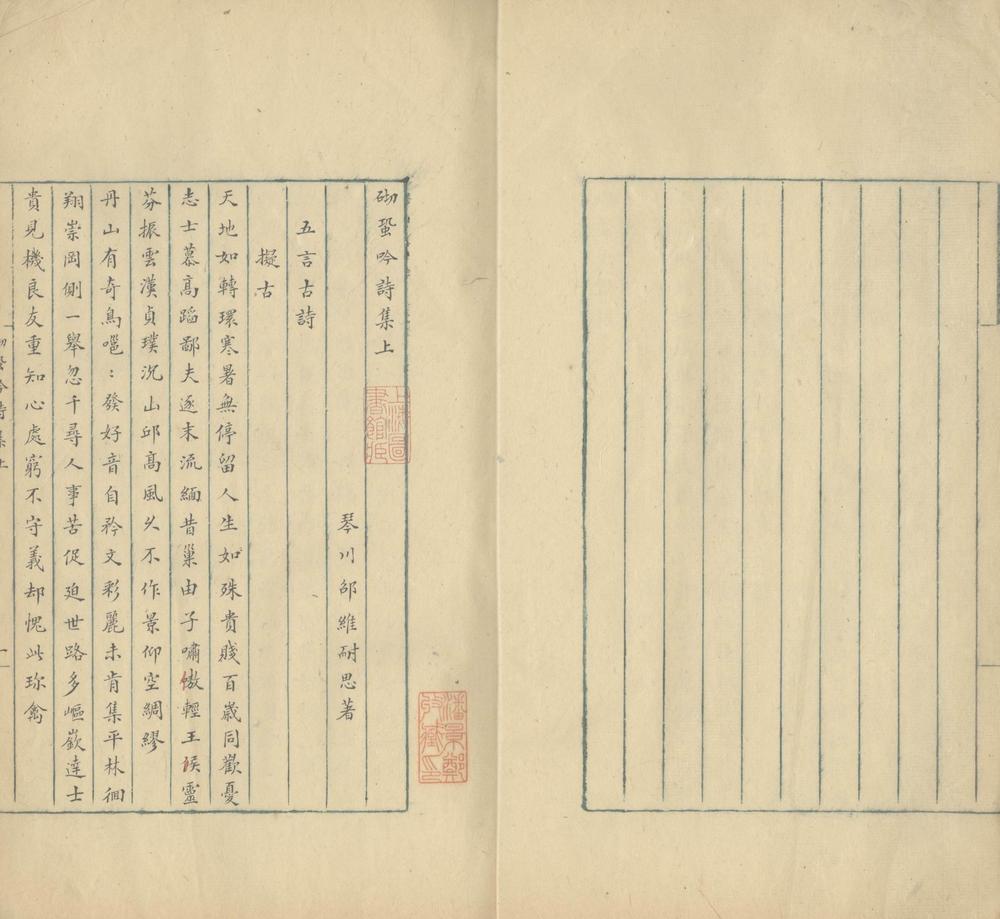 砌蛩吟詩集上
琴川邵維耐思著
五言古詩
擬古
天地如轉環寒暑無停留人生如殊貴賤百歲同歡憂
志士慕高蹈鄙夫逐末流緬昔巢由子嘯傲輕王侯靈
芬振雲漢貞璞沉山邱高風久不作景仰空綢繆
丹山有奇鳥嗈〻發好音自矜文彩麗未肯集平林徊
翔崇岡側一舉忽千尋人事苦促迫世路多嶇嶔達士
貴見機良友重知心處窮不守義却愧此珎禽
砌蛩吟詩集上
一
上海圖書館藏
潘景鄭收藏印